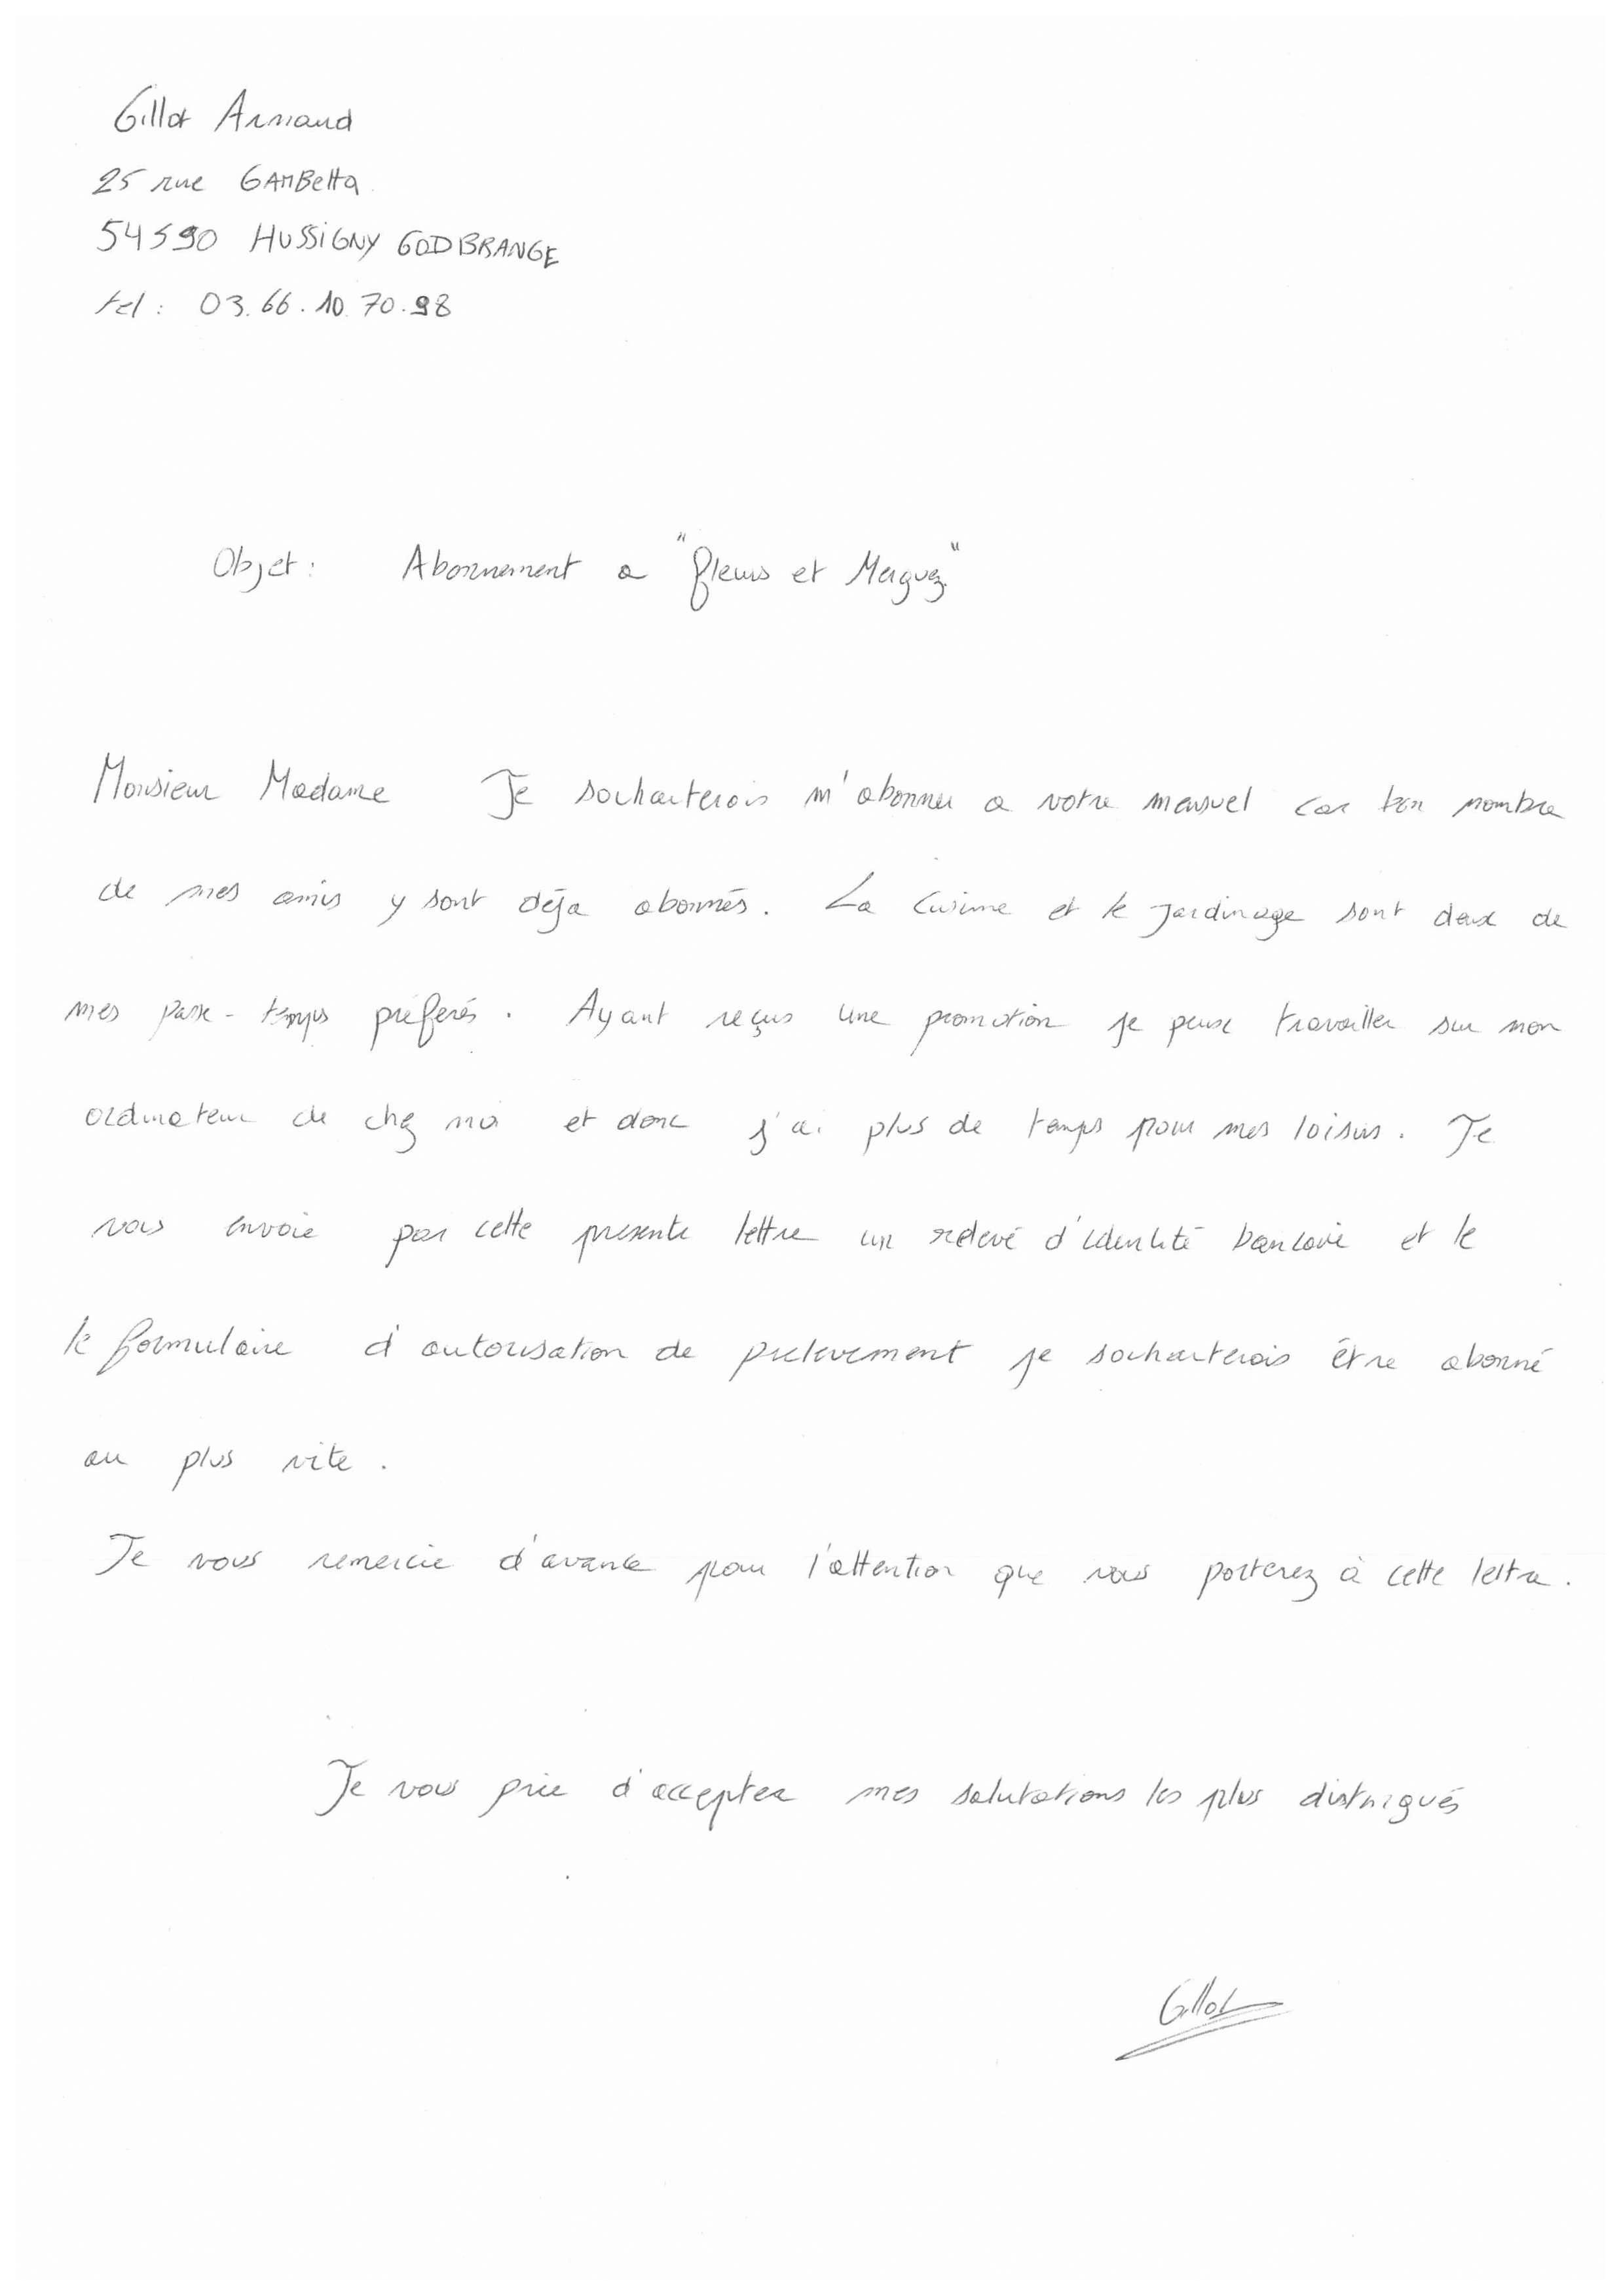 Gillot Arnaud
25 rue GAMBetta
54590 HUSSIGNY GODBRANGE
tel : 03.66.10.70.98
Objet : Abonnement a "fleurs et Merguez"
Monsieur Madame Je souhaiterois m'abonner a votre mensuel car bon nombre
de mes amis y sont déja abonnés. La cuisine et le jardinage sont deux de
mes passe-temps préferés. Ayant reçus une promotion je peux travailler sur mon
ordinateur de chez moi et donc j'ai plus de temps pour mes loisirs. Je
vous envoie par cette presente lettre un relevé d'identité bancaire et le
le formulaire d'autorisation de prelevement je souhaiterois être abonné
au plus vite.
Je vous remercie d'avance pour l'attention que vous porterez à cette lettre.
Je vous prie d'accepter mes salutations les plus distingués
Gillot